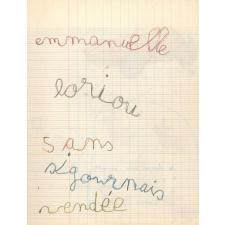 emmanuelle
loriou
5 ans
sigournais
vendée